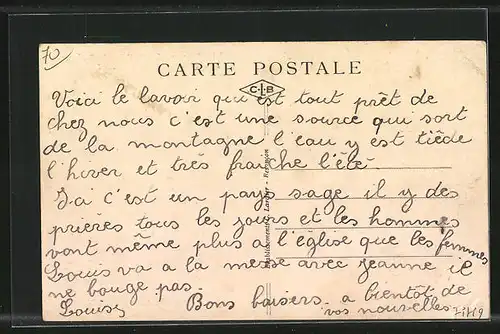 70
CARTE POSTALE
C.L.B
Voici le lavoir qui est tout prêt de
chez nous c'est une source qui sort
de la montagne l'eau y est tiède
l'hiver et très fraiche l'été.
Ici c'est un pays sage il y des
prières tous les jours et les hommes
vont même plus a l'église que les femmes
Louis va a la messe avec Jeanne il
ne bouge pas.
Bons baisers a bientôt de
Louise
vos nouvelles